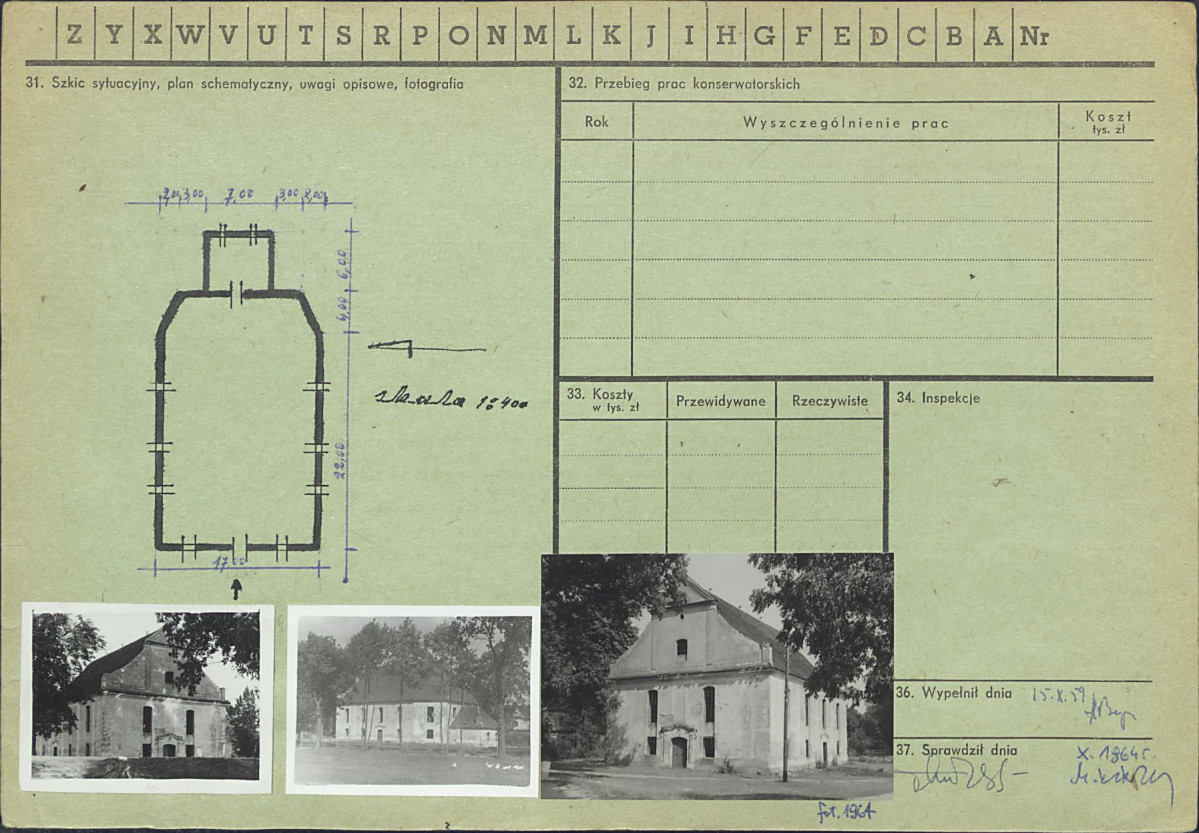 Z Y X W V U T S R P O N M L K J I H G F E D C B A Nr
31. Szkic sytuacyjny, plan schematyczny, uwagi opisowe, fotografia
2,00 3,00 7,00 3,00 2,00
6,00
4,00
22,00
17,00
skala 1:400
32. Przebieg prac konserwatorskich
Rok
Wyszczególnienie prac
Koszt
tys. zł
33. Koszty
w tys. zł
Przewidywane
Rzeczywiste
34. Inspekcje
36. Wypełnił dnia 15.X.59
37. Sprawdził dnia X. 1964r.
fot. 1964